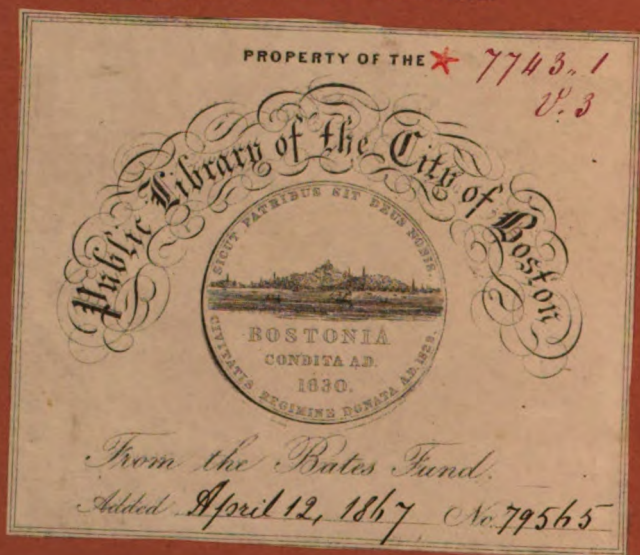 PROPERTY OF THE 7743.1
V.3
Public Library of the City of Boston
SICUT PATRIBUS SIT DEUS NOBIS.
BOSTONIA
CONDITA A.D.
1630.
CIVITATIS REGIMINE DONATA A.D. 1822.
From the Bates Fund.
Added April 12, 1867 No. 79565